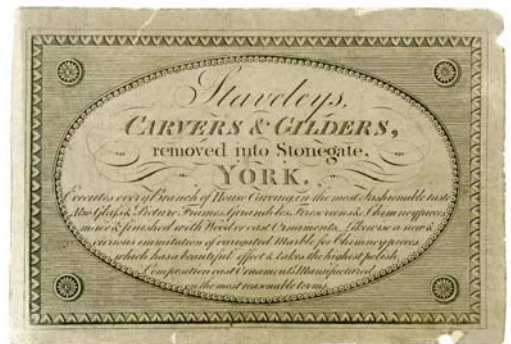 Staveleys,
CARVERS & GILDERS,
removed into Stonegate,
YORK.
Executes every Branch of House Carving in the most Fashionable taste
Also Glass & Picture Frames, Girandoles, Firescreens & Chimneypieces,
made & finished with Wood or cast Ornaments, Likewise a new &
curious immitation of varegated Marble for Chimneypieces,
which has a beautiful effect & takes the highest polish,
Composition cast Ornaments Manufactured
on the most reasonable terms